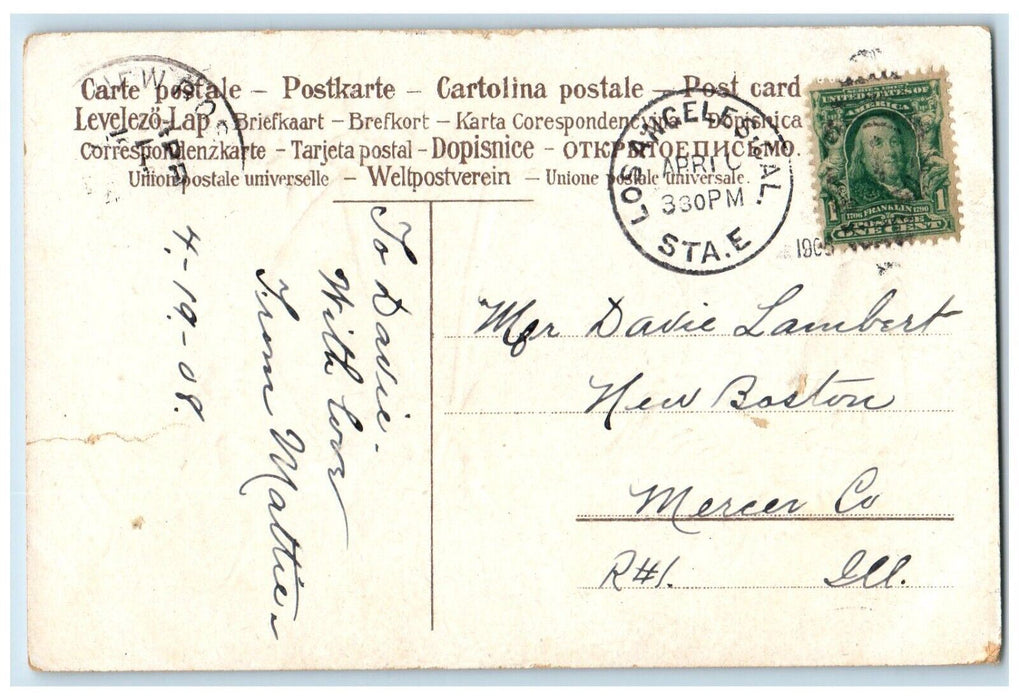 Carte postale – Postkarte – Cartolina postale – Post card
Levelező-Lap – Briefkaart – Brefkort – Karta Corespondencyjna – Dopisnica
Correspondenzkarte – Tarjeta postal – Dopisnice – ОТКРЫТОЕ ПИСЬМО.
Union postale universelle – Weltpostverein – Unione postale universale.
LOS ANGELES, CAL.
APR
330PM
STA.E
UNITED STATES OF
AMERICA
1 1706 FRANKLIN 1790 1
POSTAGE
ONE CENT
To Davie.
With love
From Mattie.
4-19-08.
Mr Davie Lambert
New Boston
Mercer Co
R#1. Ill.